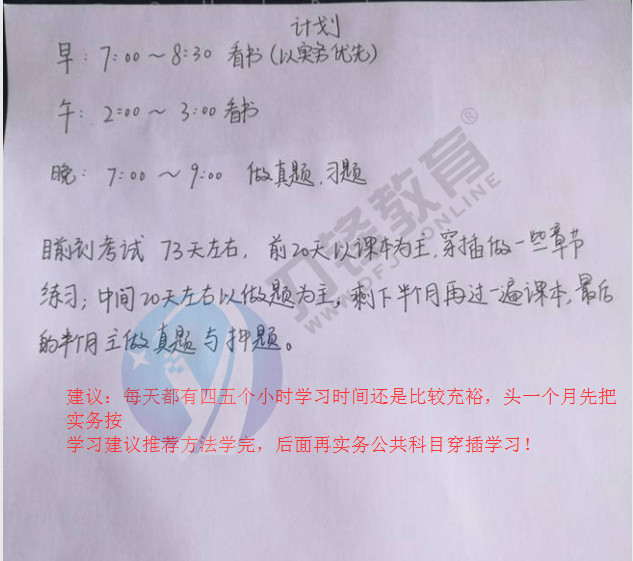 计划
早：7:00～8:30 看书(以实务优先)
午：2:00～3:00 看书
晚：7:00～9:00 做真题、习题
目前到考试 73天左右，前20天以课本为主，穿插做一些章节
练习；中间20天左右以做题为主。剩下半个月再过一遍课本，最后
的半个月主做真题与押题。
建议：每天都有四五个小时学习时间还是比较充裕，头一个月先把
实务按
学习建议推荐方法学完，后面再实务公共科目穿插学习！
刃锋教育®
DFJYONLINE